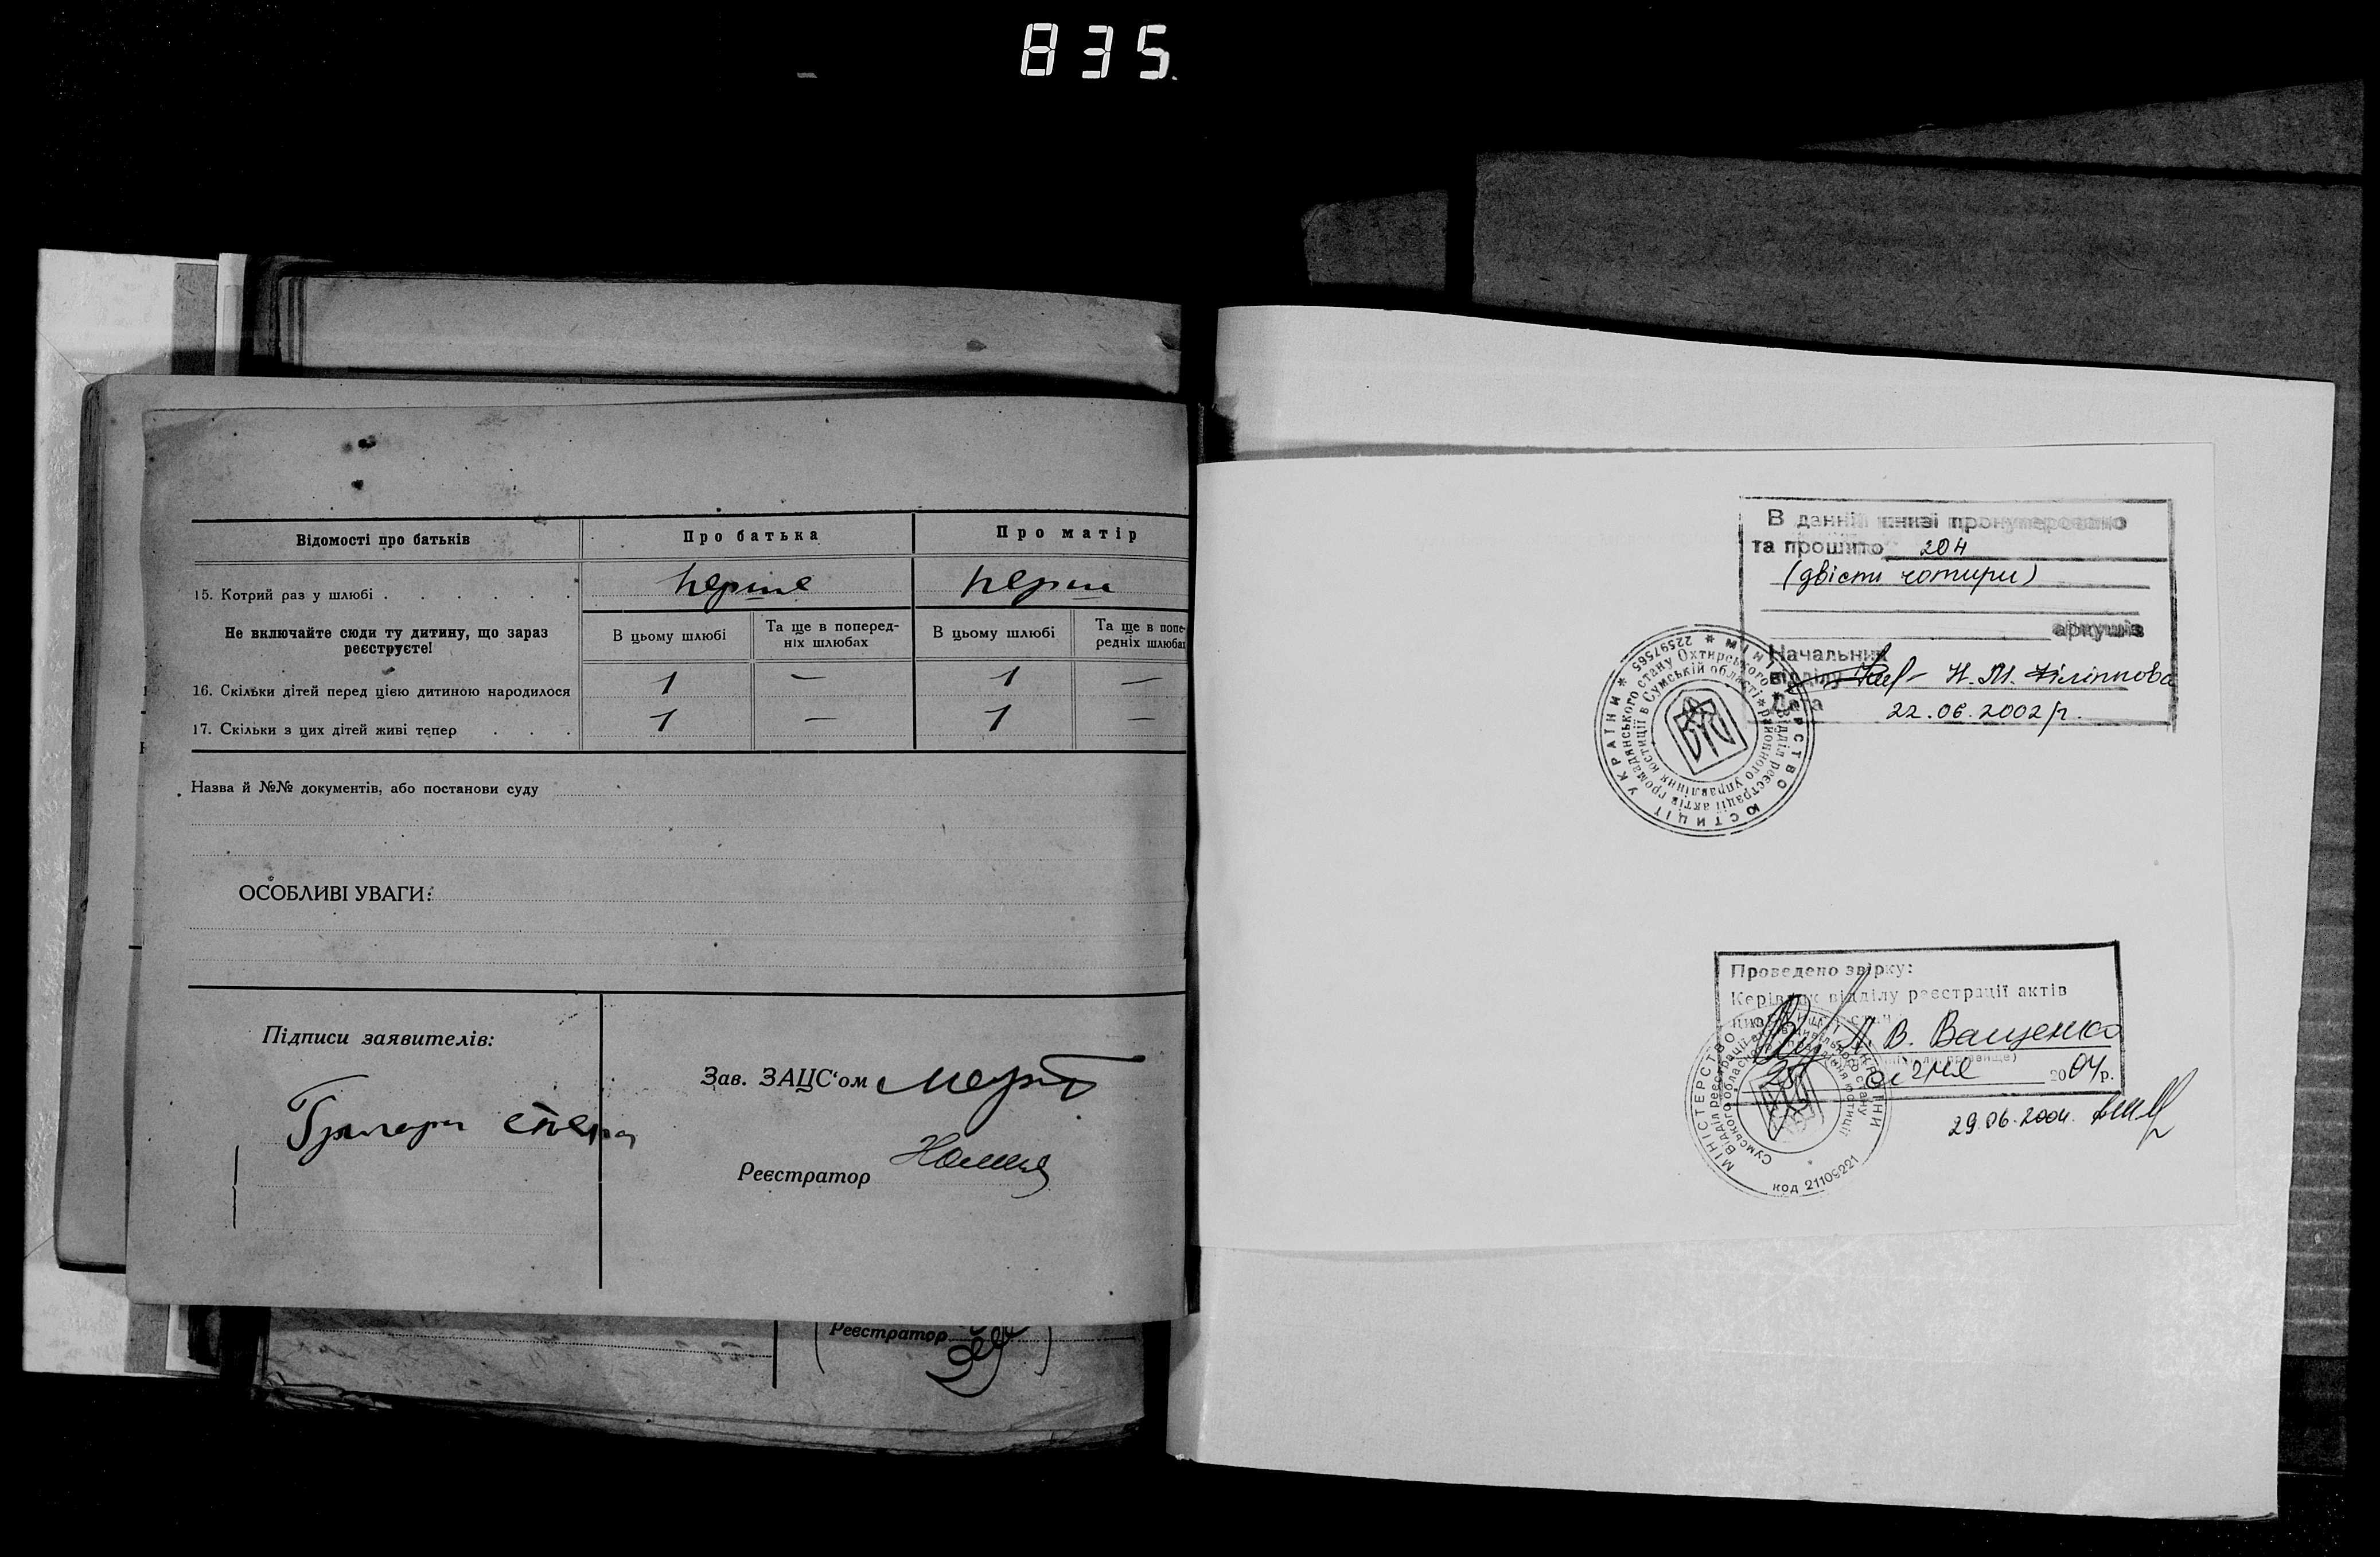 835
Відомості про батьків
Про батька
Про матір
15. Котрий раз у шлюбі
перше
перш
Не включайте сюди ту дитину, що зараз реєструєте!
В цьому шлюбі
Та ще в поперед-
ніх шлюбах
В цьому шлюбі
Та ще в попе-
редніх шлюбах
16. Скільки дітей перед цією дитиною народилося
1
—
1
—
17. Скільки з цих дітей живі тепер
1
—
1
—
Назва й №№ документів, або постанови суду
ОСОБЛИВІ УВАГИ:
Підписи заявителів:
Зав. ЗАЦС'ом
Реєстратор
Реєстратор
В данній книзі пронумеровано
та прошито 204
(двісти чотири)
аркушів
Начальник
відділу Н. М. Філіппова
Дата 22.06.2002 р.
МІНІСТЕРСТВО ЮСТИЦІЇ УКРАЇНИ * 22597565 *
Відділ реєстрації актів громадянського стану Охтирського
районного управління юстиції в Сумській області
Проведено звірку:
Керівник відділу реєстрації актів
Л. В. Ващенко
січня 2004 р.
29.06.2004.
МІНІСТЕРСТВО ЮСТИЦІЇ УКРАЇНИ
код 21109221